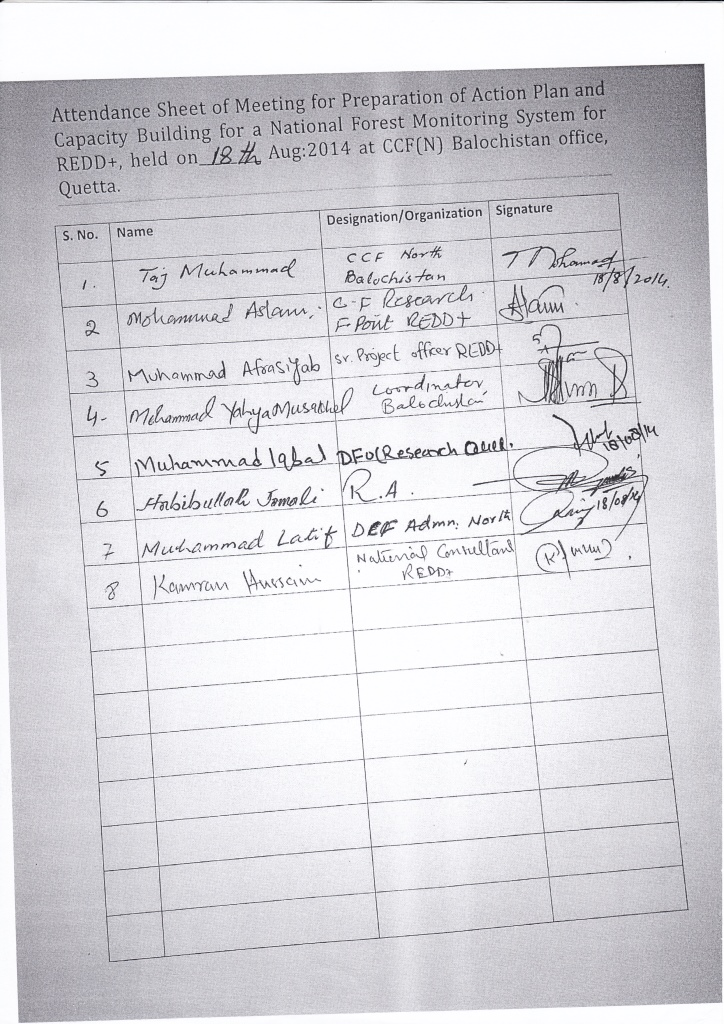 Attendance Sheet of Meeting for Preparation of Action Plan and
Capacity Building for a National Forest Monitoring System for
REDD+, held on 18th Aug:2014 at CCF(N) Balochistan office,
Quetta.
S. No. Name Designation/Organization Signature
1. Taj Muhammad CCF North
Balochistan
18/8/2014.
2 Mohammad Aslam. C.F Research
F-Point REDD+
3 Muhammad Afrasiyab sr. Project officer REDD+
4- Mohammad Yahya Musakhel Coordinator
Balochistan
5 Muhammad Iqbal DFO(Research 18/08/14
6 Habibullah Jamali R.A.
7 Muhammad Latif DCF Admn: North 18/08/14
8 Kamran Hussain National Consultant
REDD+